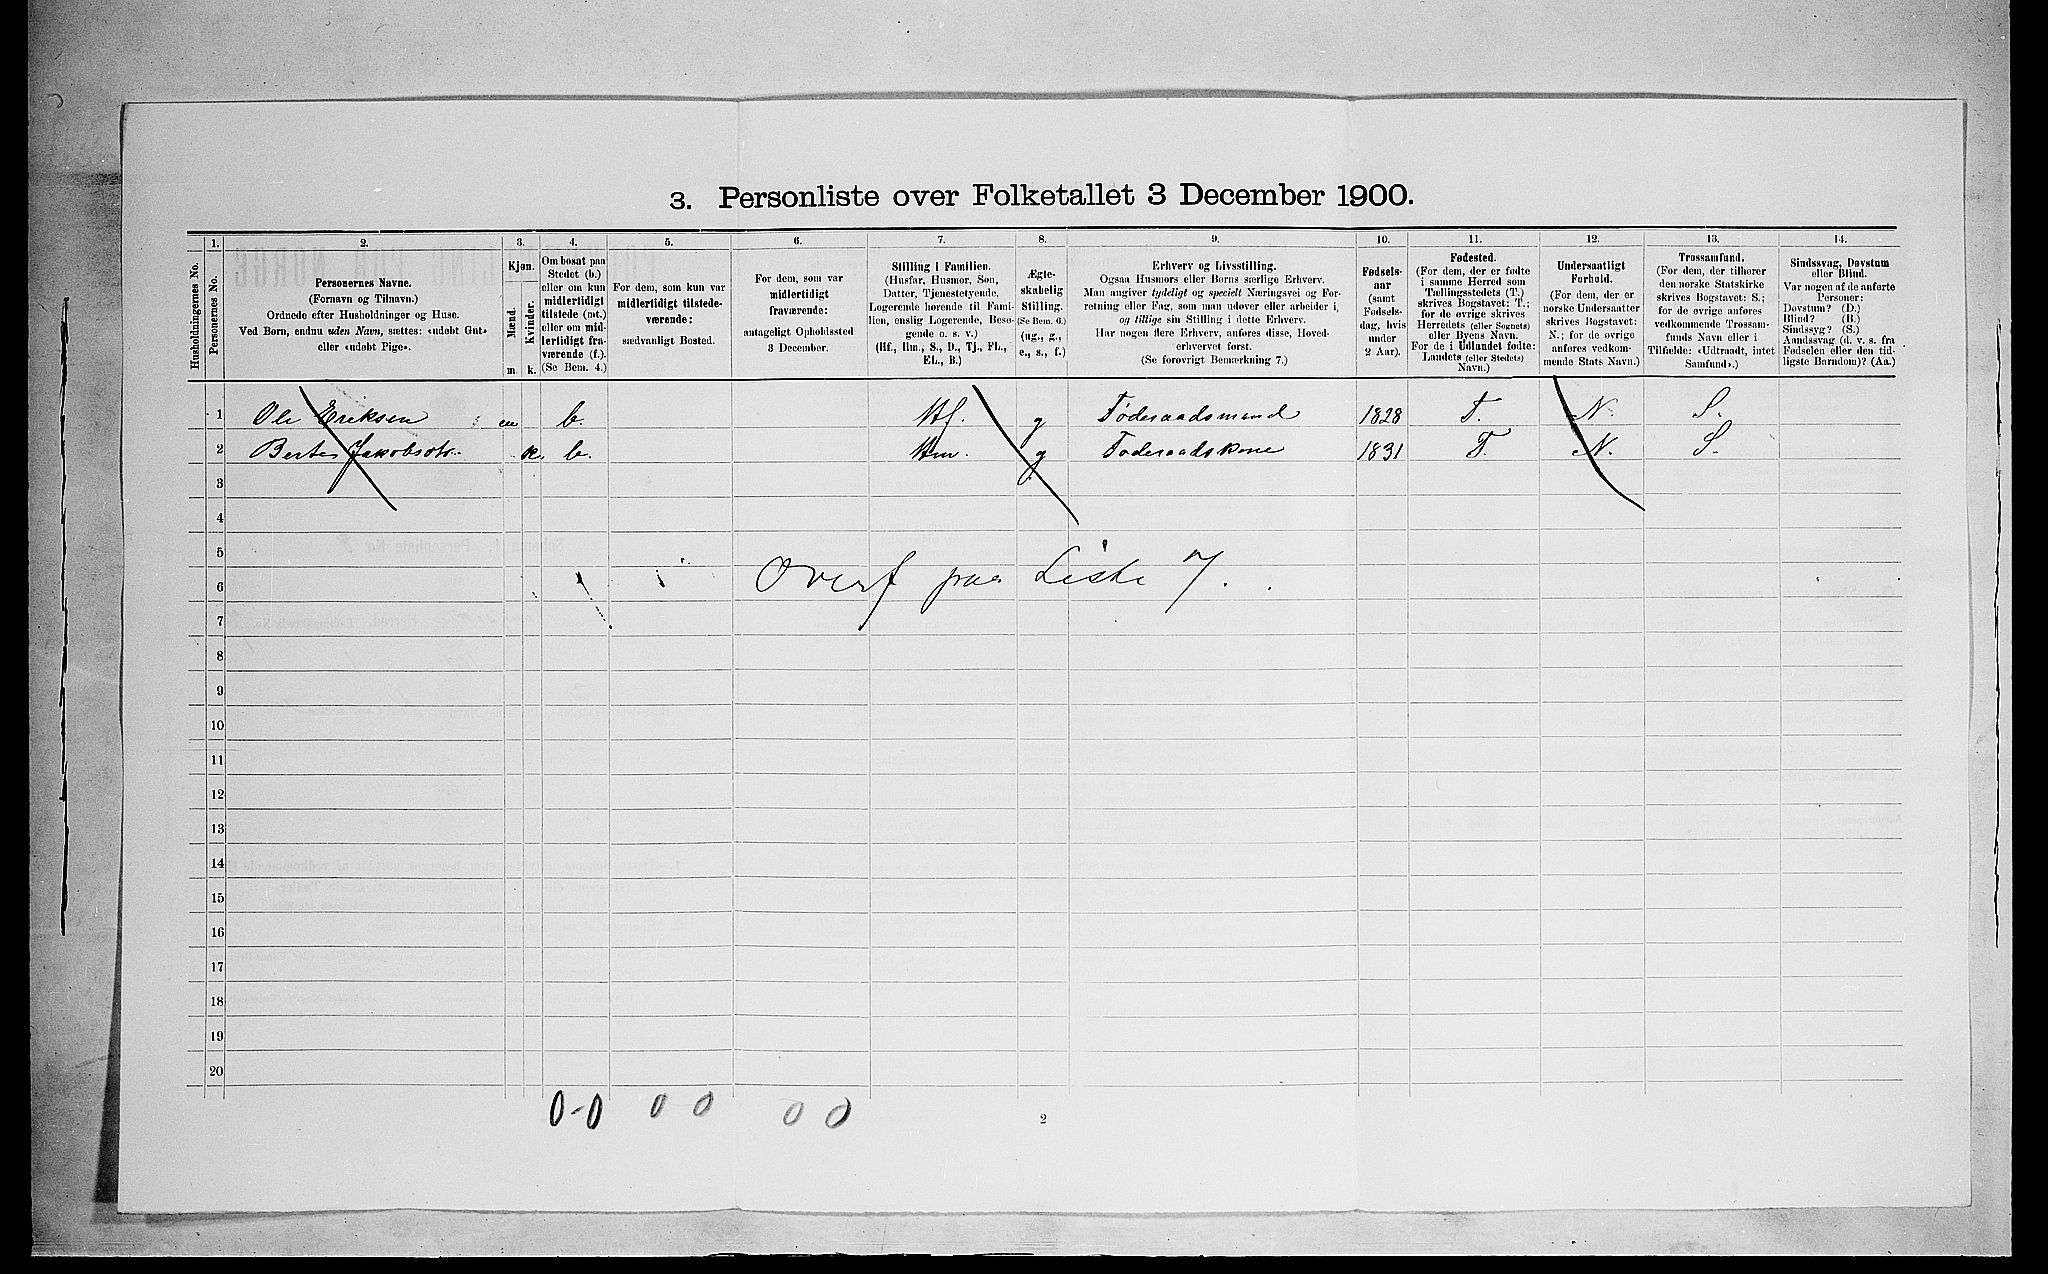 3. Personliste over Folketallet 3 December 1900.
1. 2. 3. 4. 5. 6. 7. 8. 9. 10. 11. 12. 13. 14.
Husholdningernes No.
Personernes No.
Personernes Navne.
(Fornavn og Tilnavn.)
Ordnede efter Husholdninger og Huse.
Ved Børn, endnu uden Navn, sættes: «udøbt Gut»
eller «udøbt Pige».
Kjøn.
Mænd.
Kvinder.
m. k.
Om bosat paa
Stedet (b.)
eller om kun
midlertidigt
tilstede (mt.)
eller om mid-
lertidigt fra-
værende (f.).
(Se Bem. 4.)
For dem, som kun var
midlertidigt tilstede-
værende:
sædvanligt Bosted.
For dem, som var
midlertidigt
fraværende:
antageligt Opholdssted
3 December.
Stilling i Familien.
(Husfar, Husmor, Søn,
Datter, Tjenestetyende,
Logerende hørende til Fami-
lien, enslig Logerende, Besø-
gende o. s. v.)
(Hf., Hm., S., D., Tj., FL.,
EL., B.)
Ægte-
skabelig
Stilling.
(Se Bem. 6.)
(ug., g.,
e., s., f.)
Erhverv og Livsstilling.
Ogsaa Husmors eller Børns særlige Erhverv.
Man angiver tydeligt og specielt Næringsvei og For-
retning eller Fag, som man udøver eller arbeider i,
og tillige sin Stilling i dette Erhverv.
Har nogen flere Erhverv, anføres disse, Hoved-
erhvervet først.
(Se forøvrigt Bemærkning 7.)
Fødsels-
aar
(samt
Fødsels-
dag, hvis
under
2 Aar).
Fødested.
(For dem, der er fødte
i samme Herred som
Tællingsstedets (T.)
skrives Bogstavet: T.;
for de øvrige skrives
Herredets (eller Sognets)
eller Byens Navn.
For de i Udlandet fødte:
Landets (eller Stedets)
Navn.)
Undersaatligt
Forhold.
(For dem, der er
norske Undersaatter
skrives Bogstavet:
N.; for de øvrige
anføres vedkom-
mende Stats Navn.)
Trossamfund.
(For dem, der tilhører
den norske Statskirke
skrives Bogstavet: S.;
for de øvrige anføres
vedkommende Trossam-
funds Navn eller i
Tilfælde: «Udtraadt, intet
Samfund».)
Sindssvag, Døvstum
eller Blind.
Var nogen af de anførte
Personer:
Døvstum? (D.)
Blind? (B.)
Sindssyg? (S.)
Aandssvag (d. v. s. fra
Fødselen eller den tid-
ligste Barndom)? (Aa.)
1 Ole Eriksen m b. Hf. g Føderaadsmand 1828 T. N. S.
2 Berte Jakobsdtr. k. b. Hm. g Føderaadskone 1831 T. N. S.
3
4
5
6 Overf paa Liste 7.
7
8
9
10
11
12
13
14
15
16
17
18
19
20
0-0 0 0 0 0
2